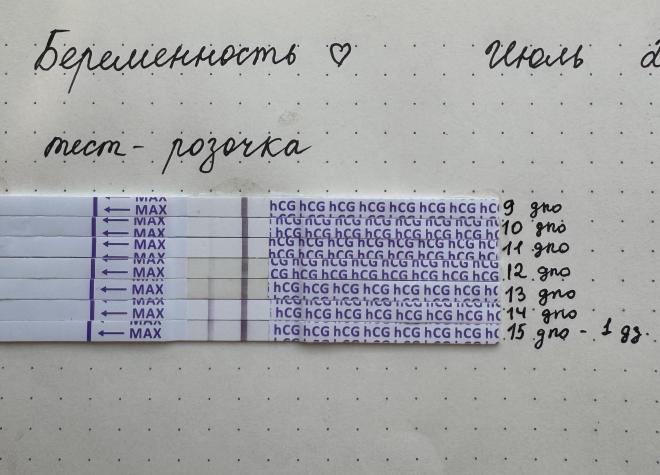 Беременность ♡ Июль
тест - розочка
MAX hCG hCG hCG hCG hCG hCG hCG hC 9 дпо
MAX hCG hCG hCG hCG hCG hCG hCG 10 дпо
MAX hCG hCG hCG hCG hCG hCG hCG 11 дпо
MAX CG hCG hCG hCG hCG hCG hCG hCG 12 дпо
MAX hCG hCG hCG hCG hCG hCG hCG hC 13 дпо
MAX hCG hCG hCG hCG hCG hCG hCG hC 14 дпо
MAX hCG hCG hCG hCG hCG hCG hCG hC 15 дпо - 1 дз.